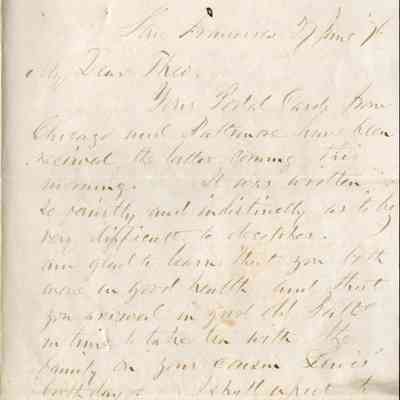 San Francisco 27 June 76
My Dear Theo.
Your Postal Cards from
Chicago and Baltimore have been
received, the latter coming this
morning. It was written
so faintly and indistinctly as to be
very difficult to decipher.
am glad to learn that you both
were in good health and that
you arrived in good old Balto
in time to take tea with the
family on your cousin Lewis'
birthday. I shall expect to